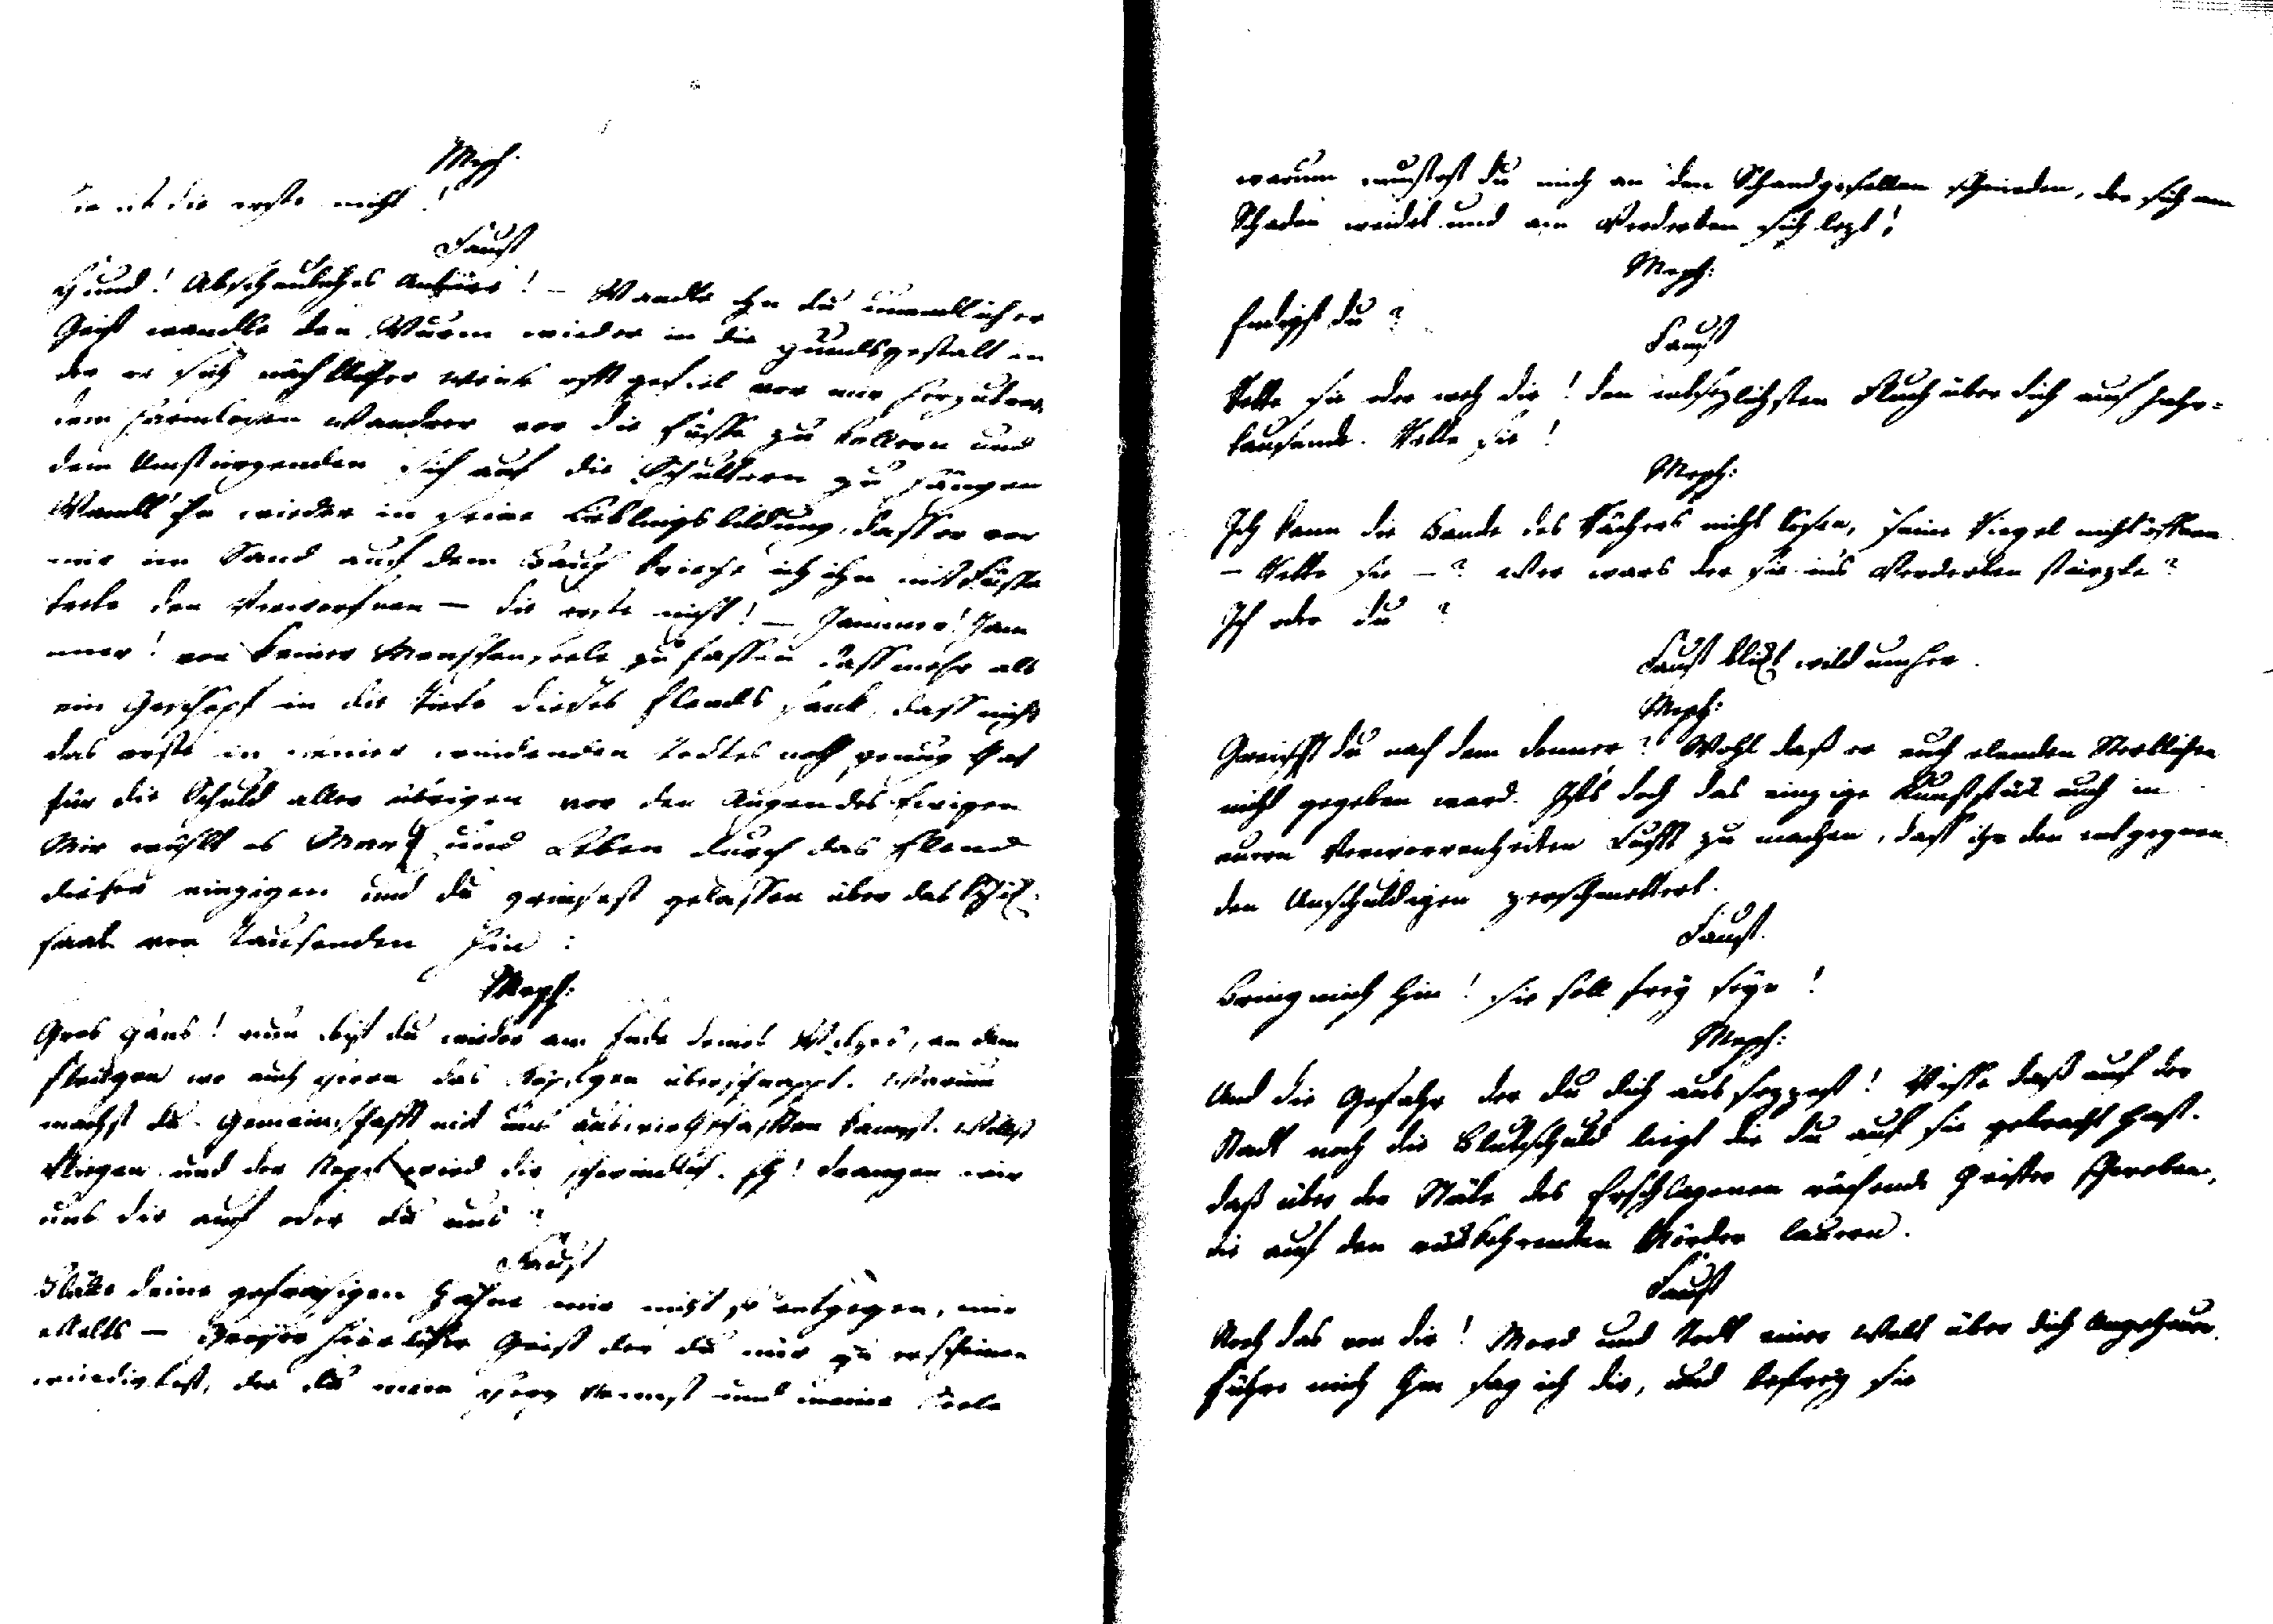 Meph:
Sie ist die erste nicht!
Faust
Hund! Abscheuliches Untier! – Wandle ihn du unendlicher
Geist wandle den Wurm wieder in die Hundsgestalt in
der er sich nächtlicher Weise offt gefiel vor mir herzutrotten
dem harmlosen Wandrer vor die Füsse zu kollern und
dem Umstürzenden sich auf die Schultern zu hängen
Wandl' ihn wieder in seine Lieblingsbildung, dass er vor
mir im Sand auf dem Bauch krieche ich ihn mit Füssen
trete den Verworfnen – die erste nicht! – Jammer! Jam
mer! von keiner Menschenseele zu fassen dass mehr als
ein Geschöpf in die Tiefe dieses Elends sank, dass nicht
das erste in seiner windenden Todtes noth genug that
für die Schuld aller übrigen vor den Augen des Ewigen
Mir wühlt es Marck und Leben durch das Elend
dieser einzigen und du grinsest gelassen über das Schick-
saal von Tausenden hin!
Meph:
Gros Hans! nun bist du wieder am Ende deines Witzes, an dem
fleckgen wo euch Herrn das Köpfgen überschnappt. Warum
machst du Gemeinschafft mit uns wenn du nicht mit uns auswirthschafften kannst. Willst
fliegen und der Kopf wird dir schwindlich. Eh! drangen wir
uns dir auf oder du uns?
Faust
Bläke deine gefräsigen Zähne mir nicht so entgegen, mir
ekelts – Groser herrlicher Geist der du mir zu erscheinen
würdigtest, der du mein Herz kennst und meine Seele
warum musstest du mich an den Schandgesellen schmieden, der sich am
Schaden weidet und am Verderben sich lezt!
Meph:
Endigst du?
Faust
Rette sie oder weh dir! den entsezlichsten Fluch über dich auf Jahr-
tausende. Rette sie!
Meph:
Ich kann die Bande des Rächers nicht lösen, seine Riegel nicht öffnen
– Rette sie –? Wer wars der sie ins Verderben stürzte?
Ich oder du?
Faust blickt wild umher.
Meph:
Greiffst du nach dem Donner? Wohl daß er euch elenden Sterblichen
nicht gegeben ward. Ists doch das einzige Kunststück euch in
euern Verworrenheiten Lufft zu machen, dass ihr den entgegnen
den Unschuldigen zerschmettert.
Faust.
Bring mich hin! sie soll frey seyn!
Meph:
Und die Gefahr der du dich aussezzest! Wisse daß auf der
Stadt noch die Blutschuld liegt die du auf sie gebracht hast.
daß über der Stäte des Erschlagenen rächende Geister schweben,
die auf den rückkehrenden Mörder lauern.
Faust
Noch das von dir! Mord und Todt einer Welt über dich Ungeheuer.
Führe mich hin sag ich dir, und befrey sie